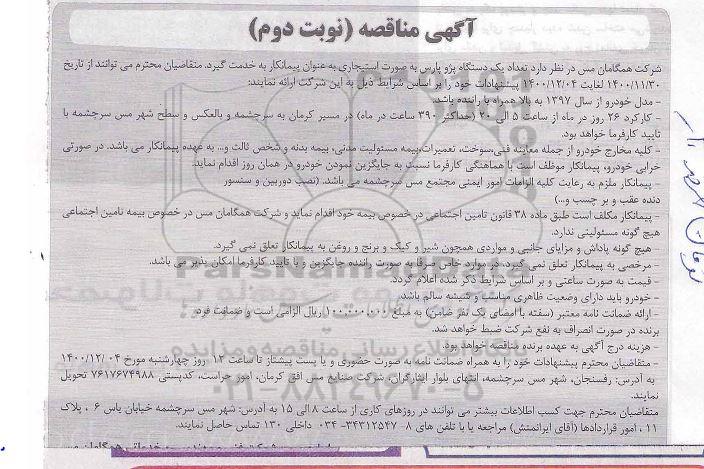 آگهی مناقصه (نوبت دوم)
شرکت همگامان مس در نظر دارد تعداد یک دستگاه پژو پارس به صورت استیجاری به عنوان پیمانکار به خدمت گیرد. متقاضیان محترم می توانند از تاریخ
۱۴۰۰/۱۱/۳۰ لغایت ۱۴۰۰/۱۲/۰۴ پیشنهادات خود را بر اساس شرایط ذیل به این شرکت ارائه نمایند:
- مدل خودرو از سال ۱۳۹۷ به بالا همراه با راننده باشد.
- کارکرد ۲۶ روز در ماه از ساعت ۵ الی ۲۰ (حداکثر ۳۹۰ ساعت در ماه) در مسیر کرمان به سرچشمه و بالعکس و سطح شهر مس سرچشمه با
تایید کارفرما خواهد بود.
- کلیه مخارج خودرو از جمله معاینه فنی،سوخت، تعمیرات،بیمه مسئولیت مدنی، بیمه بدنه و شخص ثالث و... به عهده پیمانکار می باشد. در صورتی
خرابی خودرو، پیمانکار موظف است با هماهنگی کارفرما نسبت به جایگزین نمودن خودرو در همان روز اقدام نماید.
- پیمانکار ملزم به رعایت کلیه الزامات امور ایمنی مجتمع مس سرچشمه می باشد. (نصب دوربین و سنسور
دنده عقب و بر چسب و...)
- پیمانکار مکلف است طبق ماده ۳۸ قانون تامین اجتماعی در خصوص بیمه خود اقدام نماید و شرکت همگامان مس در خصوص بیمه تامین اجتماعی
هیچ گونه مسئولیتی ندارد.
- هیچ گونه پاداش و مزایای جانبی و مواردی همچون شیر و کیک و برنج و روغن به پیمانکار تعلق نمی گیرد.
- مرخصی به پیمانکار تعلق نمی گیرد، در موارد خاص صرفا به صورت راننده جایگزین و با تایید کارفرما امکان پذیر می باشد.
- قیمت به صورت ساعتی و بر اساس شرایط ذکر شده اعلام گردد.
- خودرو باید دارای وضعیت ظاهری مناسب و شیشه سالم باشد.
- ارائه ضمانت نامه معتبر (سفته با امضای یک نفر ضامن) به مبلغ ۱۰۰,۰۰۰,۰۰۰ ریال الزامی است و ضمانت فرد
برنده در صورت انصراف به نفع شرکت ضبط خواهد شد.
- هزینه درج آگهی به عهده برنده مناقصه خواهد بود.
- متقاضیان محترم پیشنهادات خود را به همراه ضمانت نامه به صورت حضوری و یا پست پیشتاز تا ساعت ۱۲ روز چهارشنبه مورخ ۱۴۰۰/۱۲/۰۴
به آدرس: رفسنجان، شهر مس سرچشمه، انتهای بلوار ایثارگران، شرکت صنایع مس افق کرمان، امور حراست، کدپستی ۷۶۱۷۶۷۴۹۸۸ تحویل
نمایند.
متقاضیان محترم جهت کسب اطلاعات بیشتر می توانند در روزهای کاری از ساعت ۸ الی ۱۵ به آدرس: شهر مس سرچشمه خیابان یاس ۶ ، پلاک
۱۱ ، امور قراردادها (آقای ایرانمنش) مراجعه یا با تلفن های ۸- ۳۴۳۱۲۵۴۷- ۰۳۴ داخلی ۱۳۰ تماس حاصل نمایند.
ParsNamadData
۰۲۱-۸۸۳۴۹۶۷۰-۵